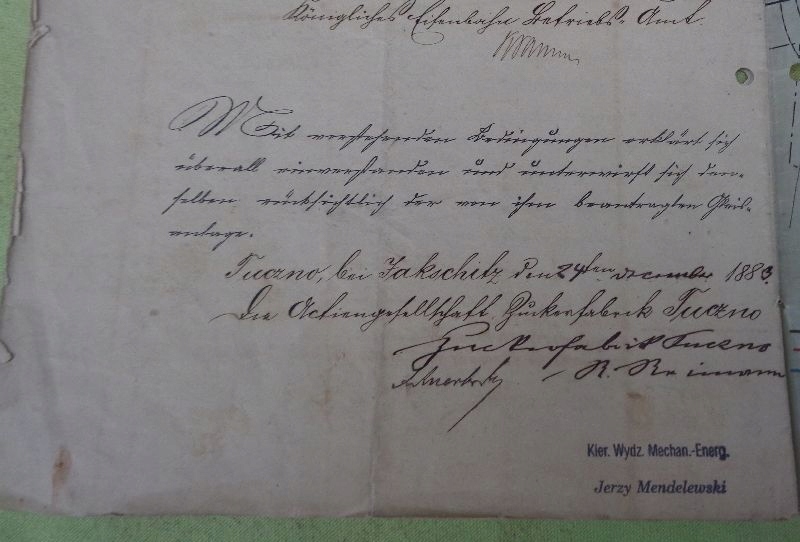 Königliches Eisenbahn Betriebs-Amt.
Mit vorstehenden Bedingungen erklärt sich
überall einverstanden und unterwirft sich den-
selben rücksichtlich der von ihm beantragten Gleis-
anlage.
Tuczno, bei Jakschitz den 24ten December 1883.
Die Actiengesellschaft Zuckerfabrik Tuczno
Zuckerfabrik Tuczno
R. Reimann
Kier. Wydz. Mechan.-Energ.
Jerzy Mendelewski